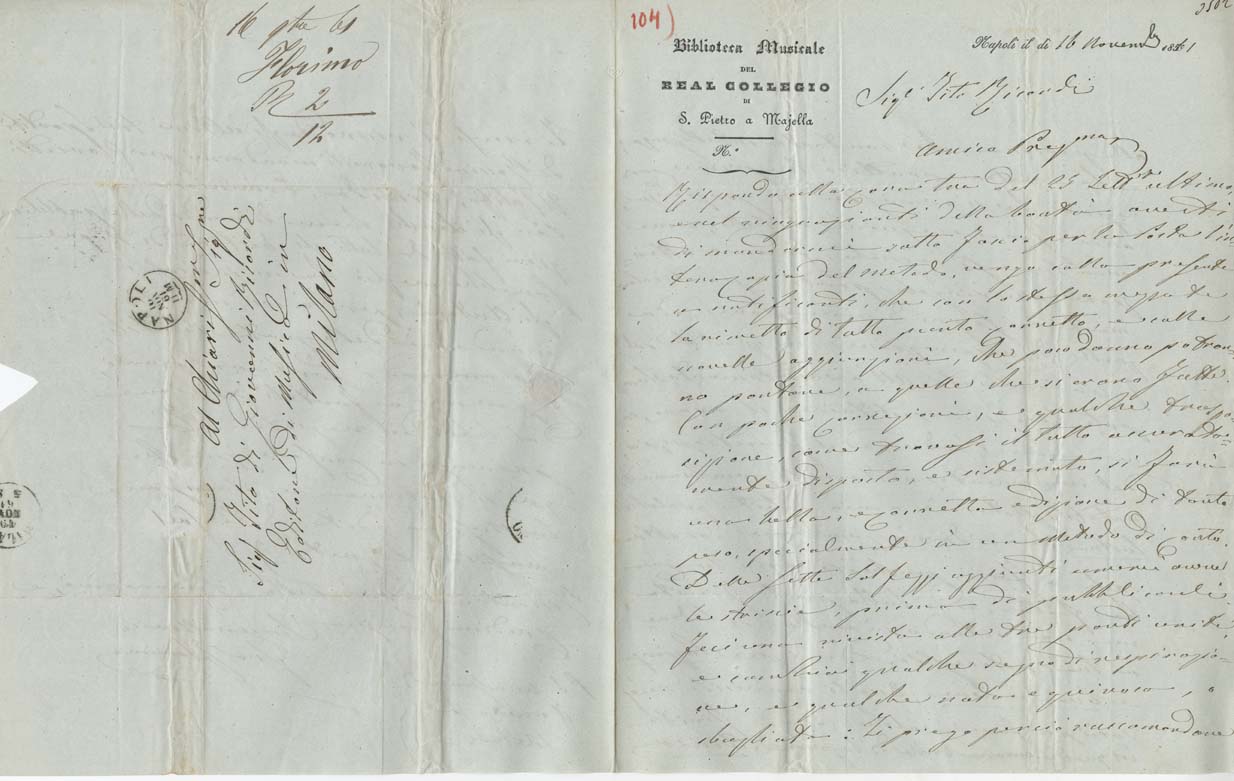 16 9bre 61
Florimo
R 2
12
Al Chiariss. Sigre
Sigr Tito di Giovanni Ricordi
Editore di Musica in
Milano
NAPOLI
104)
3502
Biblioteca Musicale
DEL
REAL COLLEGIO
DI
S. Pietro a Majella
N.°
Napoli il dì 16 Novembre 1861
Sigr Tito Ricordi
Amico Pregmo
Rispondo alla cara tua del 25 Sett. ultimo,
e nel ringraziarti della bontà avesti
di mandarmi sotto fascia per la Posta l'in=
tera copia del metodo, vengo colla presente
a notificarti, che con lo stesso mezzo te
la rimetto di tutto punto corretto, e colle
novelle aggiunzioni, che poco danno potran=
no portare, a quelle che si erano fatte.
Con poche correzioni, e qualche traspo=
sizione, come trovasi il tutto accurata=
mente disposto, e sistemato, si farà
una bella, e corretta edizione di tanto
peso, specialmente in un Metodo di Canto.
Delle sette Solfeggi aggiunti amerei avere
le strisce, prima di pubblicarli.
Feci una rivista alle tre parti unite,
e cambiai qualche segno di respirazio=
ne, e qualche nota equivoca, o
sbagliata: Ti prego perciò raccomandare